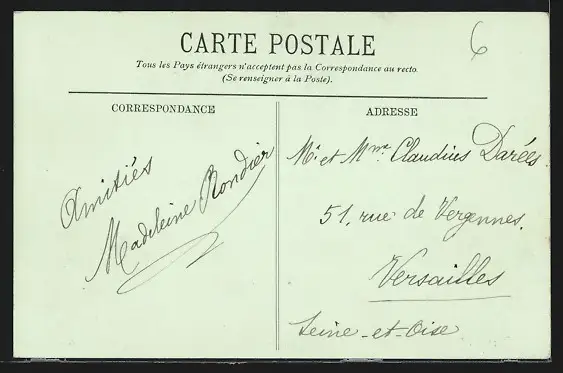 CARTE POSTALE
6
Tous les Pays étrangers n'acceptent pas la Correspondance au recto
(Se renseigner à la Poste).
CORRESPONDANCE
ADRESSE
Amitiés
Madeleine Rondier
Mr et Mme Claudius Darées
51, rue de Vergennes.
Versailles
Seine-et-Oise